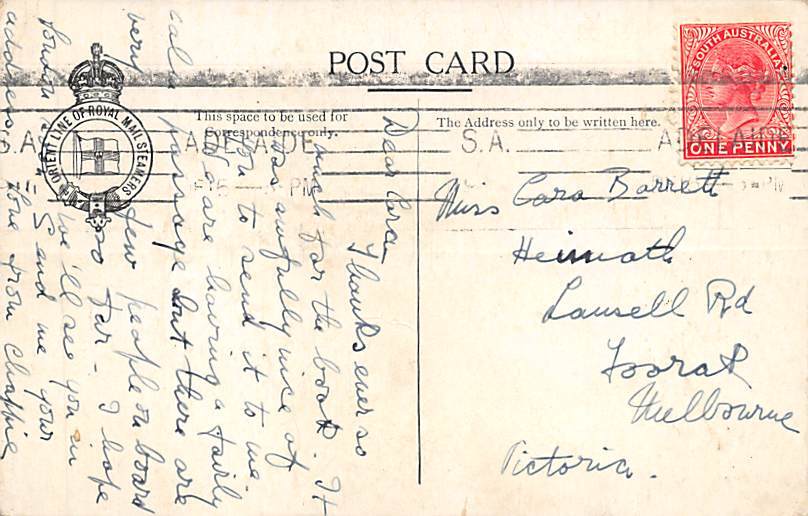 POST CARD
This space to be used for
Correspondence only.
The Address only to be written here.
ORIENT LINE OF ROYAL MAIL STEAMERS
SOUTH AUSTRALIA
ONE PENNY
ADELAIDE
S.A.
ADELAIDE
PM
Miss Cara Barrett
Heimath
Lansell Rd
Toorak
Melbourne
Victoria.
Dear Cara
Thanks ever so
much for the book. It
was awfully nice of
you to send it to me
We are having a fairly
calm passage but there are
very few people on board
so far - I hope
we'll see you in
London = Send me your
address love from Chappie